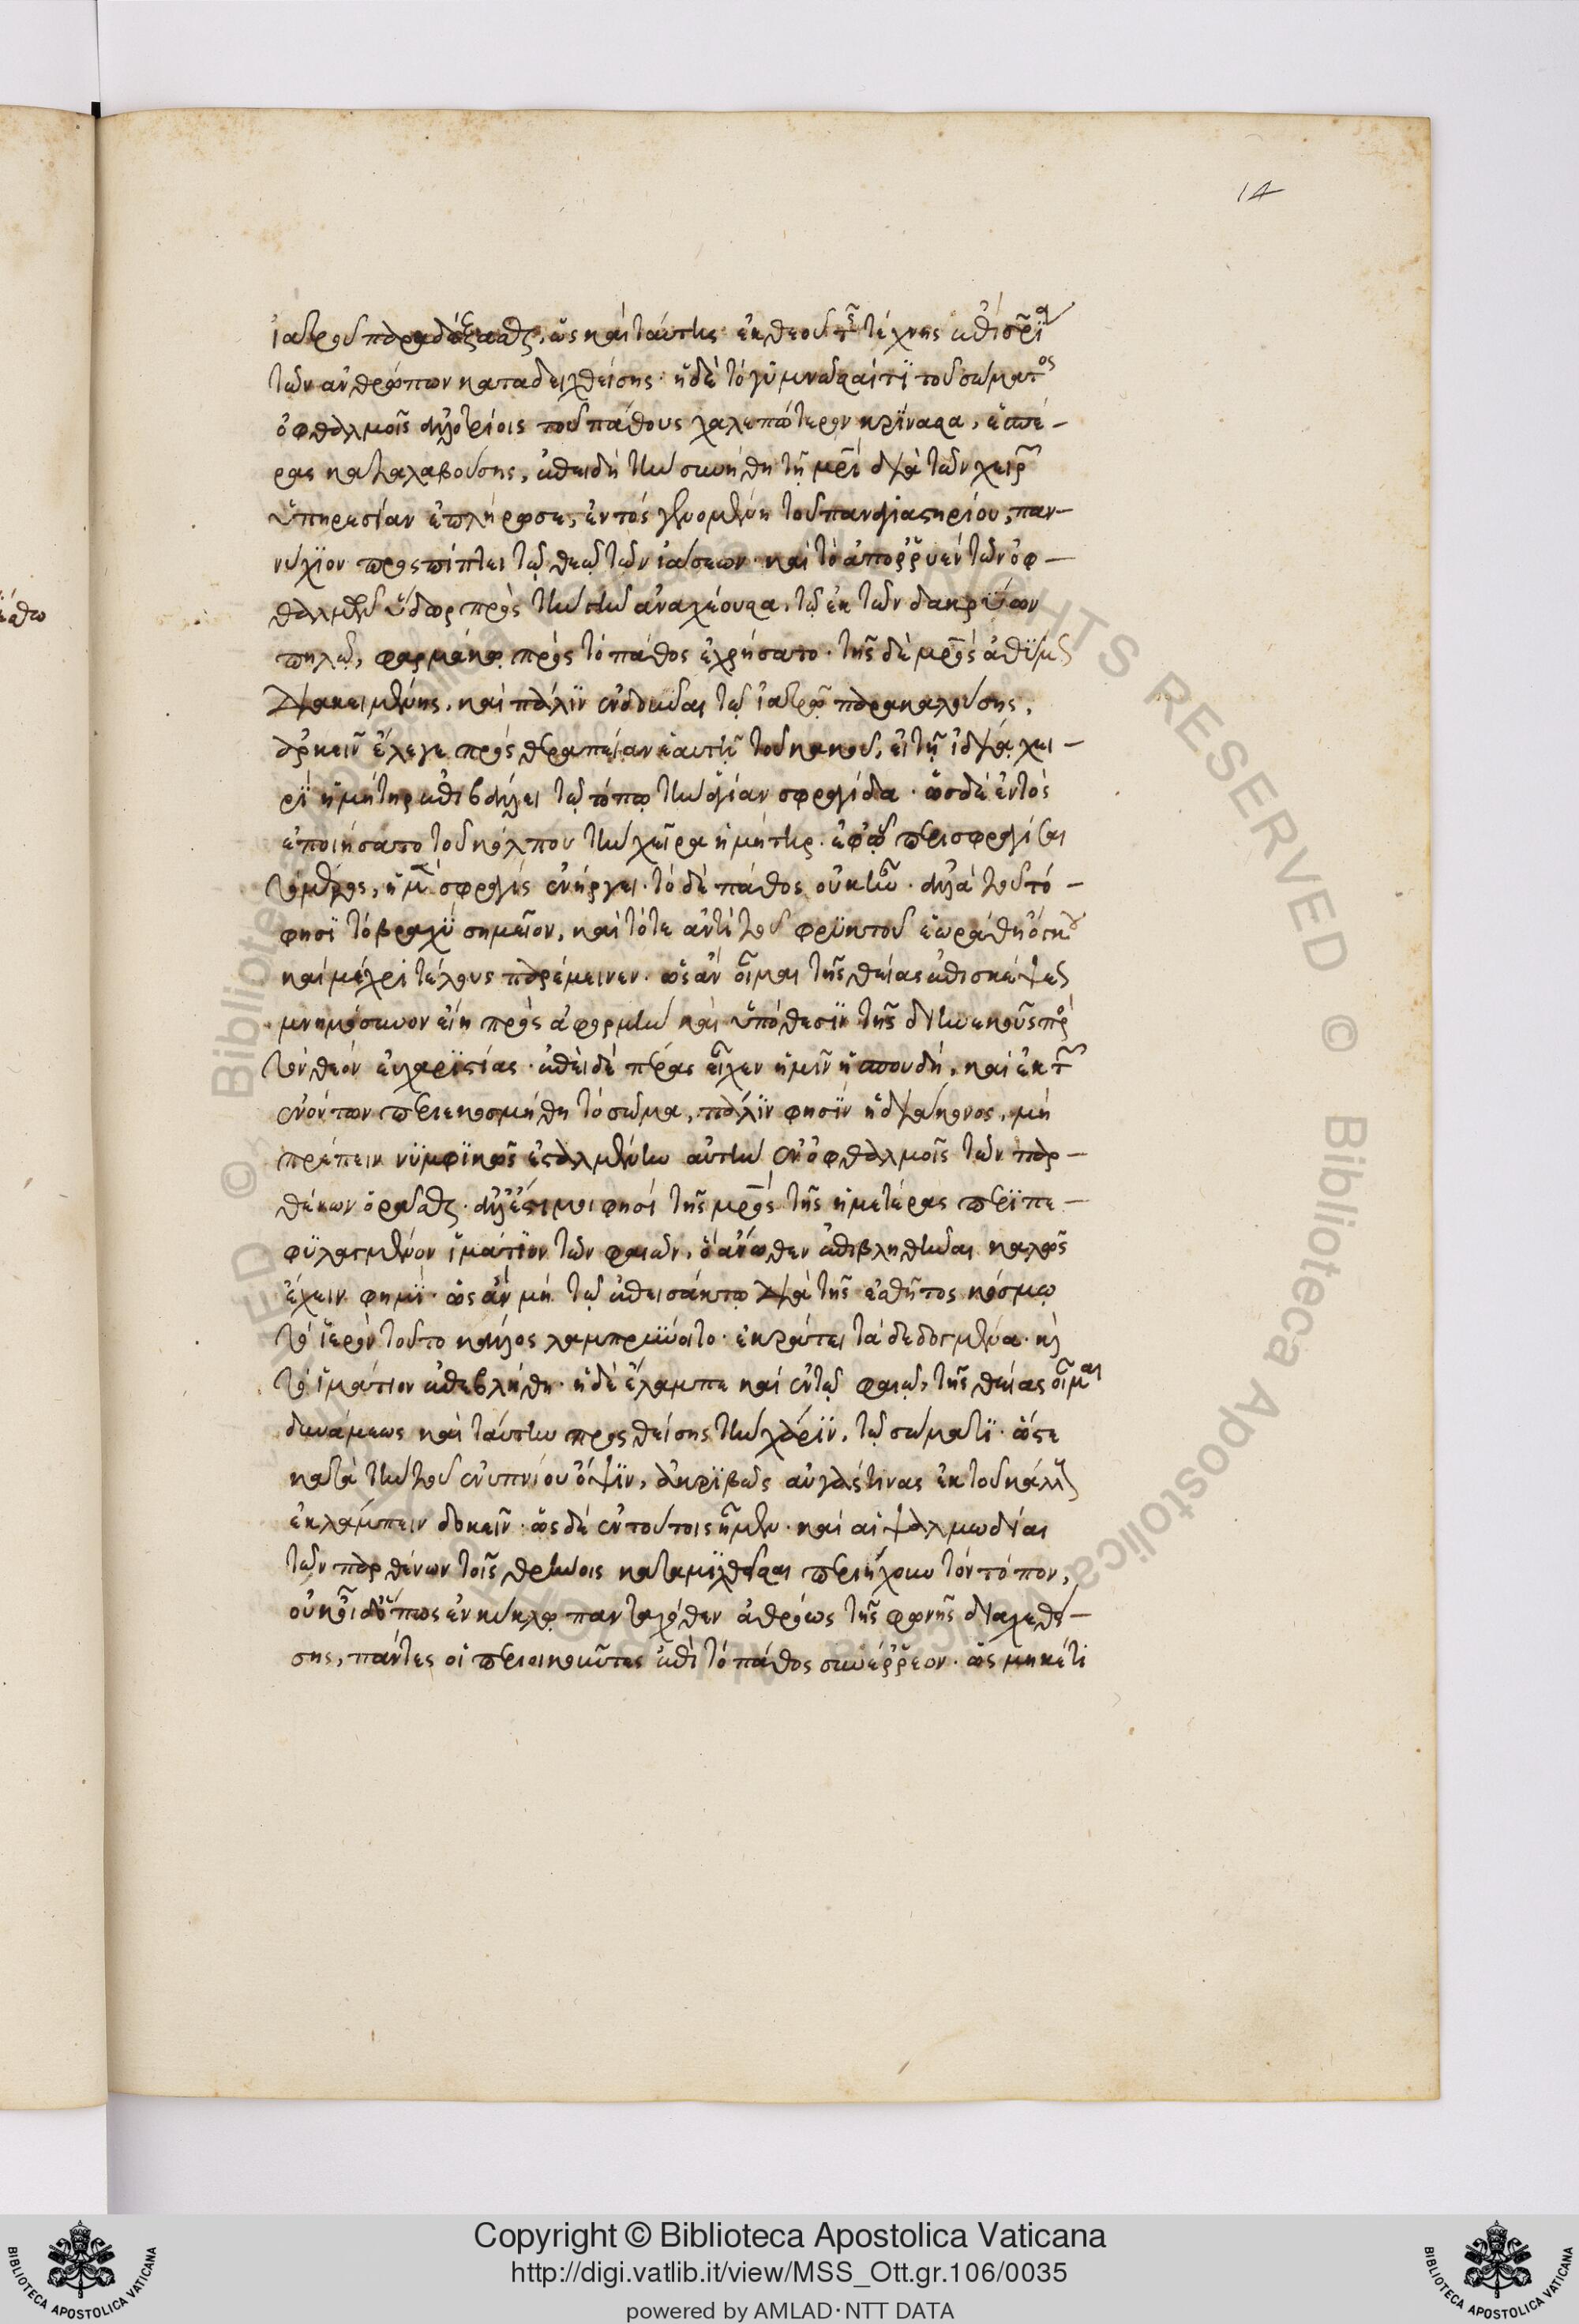 14
ἰατροῦ παραδέξασθαι, ὡς καὶ ταύτης ἐκ θεοῦ τῆς τέχνης ἐπὶ σωτηρίᾳ
τῶν ἀνθρώπων καταδειχθείσης· ἡ δὲ τὸ γυμνῶσαί τι τοῦ σώματος
ὀφθαλμοῖς ἀλλοτρίοις τοῦ πάθους χαλεπώτερον κρίνασα, ἑσπέ-
ρας καταλαβούσης, ἐπειδὴ τὴν συνήθη τῇ μρὶ διὰ τῶν χειρῶν
ὑπηρεσίαν ἐπλήρωσεν, ἐντὸς γενομένη τοῦ παναγιαστηρίου, παν-
νύχιον προσπίπτει τῷ θεῷ τῶν ἰάσεων· καὶ τὸ ἀπορρυὲν τῶν ὀφ-
θαλμῶν ὕδωρ πρὸς τὴν γῆν ἀναχέουσα, τῷ ἐκ τῶν δακρύων
πηλῷ, φαρμάκῳ πρὸς τὸ πάθος ἐχρήσατο· τῆς δὲ μρὸς ἀθύμως
διακειμένης, καὶ πάλιν ἐνδοῦναι τῷ ἰατρῷ παρακαλούσης,
ἀρκεῖν ἔλεγε πρὸς θεραπείαν ἑαυτῇ τοῦ κακοῦ, εἰ τῇ ἰδίᾳ χει-
ρὶ ἡ μήτηρ ἐπιβάλλει τῷ τόπῳ τὴν ἁγίαν σφραγίδα· ὡς δὲ ἐντὸς
ἐποιήσατο τοῦ κόλπου τὴν χεῖρα ἡ μήτηρ. ἐφ' ᾧ περισφραγίσαι
τὸ μέρος, ἡ μὲν σφραγὶς ἐνήργει· τὸ δὲ πάθος οὐκ ἦν· ἀλλὰ τοῦτό
φησι τὸ βραχὺ σημεῖον, καὶ τότε ἀντὶ τοῦ φρικτοῦ ἑωράθη ὄγκου
καὶ μέχρι τέλους παρέμεινεν· ὡς ἂν οἶμαι τῆς θείας ἐπισκέψεως
μνημόσυνον εἴη πρὸς ἀφορμὴν καὶ ὑπόθεσιν τῆς διηνεκοῦς πρὸς
τὸν θεὸν εὐχαριστίας· ἐπεὶ δὲ πέρας εἶχεν ἡμῖν ἡ σπουδή, καὶ ἐκ τῶν
ἐνόντων περιεκοσμήθη τὸ σῶμα, πάλιν φησὶν ἡ διάκονος, μὴ
πρέπειν νυμφικῶς ἐσταλμένην αὐτὴν ἐν ὀφθαλμοῖς τῶν παρ-
θένων ὁρᾶσθαι· ἀλλ' ἔστι μοι φησὶ τῆς μρὸς τῆς ἡμετέρας περὶ πε-
φυλαγμένον ἱμάτιον τῶν φαιῶν, ὃ ἄνωθεν ἐπιβληθῆναι καλῶς
ἔχειν φημί· ὡς ἂν μὴ τῷ ἐπεισάκτῳ διὰ τῆς ἐσθῆτος κόσμῳ
τὸ ἱερὸν τοῦτο κάλλος λαμπρύνοιτο· ἐκράτει τὰ δεδογμένα· καὶ
τὸ ἱμάτιον ἐπεβλήθη· ἡ δὲ ἔλαμπε καὶ ἐν τῷ φαιῷ, τῆς θείας οἶμαι
δυνάμεως καὶ ταύτην προσθείσης τὴν χάριν, τῷ σώματι· ὥστε
κατὰ τὴν τοῦ ἐνυπνίου ὄψιν, ἀκριβῶς αὐγάς τινας ἐκ τοῦ κάλλους
ἐκλάμπειν δοκεῖν· ὡς δὲ ἐν τούτοις ἦμεν· καὶ αἱ ψαλμωδίαι
τῶν παρθένων τοῖς θρήνοις καταμιχθεῖσαι περιήχουν τὸν τόπον,
οὐκ οἶδ' ὅπως ἐν κύκλῳ πανταχόθεν ἀθρόως τῆς φωνῆς διαχεθεί-
σης, πάντες οἱ περιοικοῦντες ἐπὶ τὸ πάθος συνέρρεον· ὡς μηκέτι
Copyright © Biblioteca Apostolica Vaticana
http://digi.vatlib.it/view/MSS_Ott.gr.106/0035
powered by AMLAD·NTT DATA
BIBLIOTECA APOSTOLICA VATICANA
BIBLIOTECA APOSTOLICA VATICANA